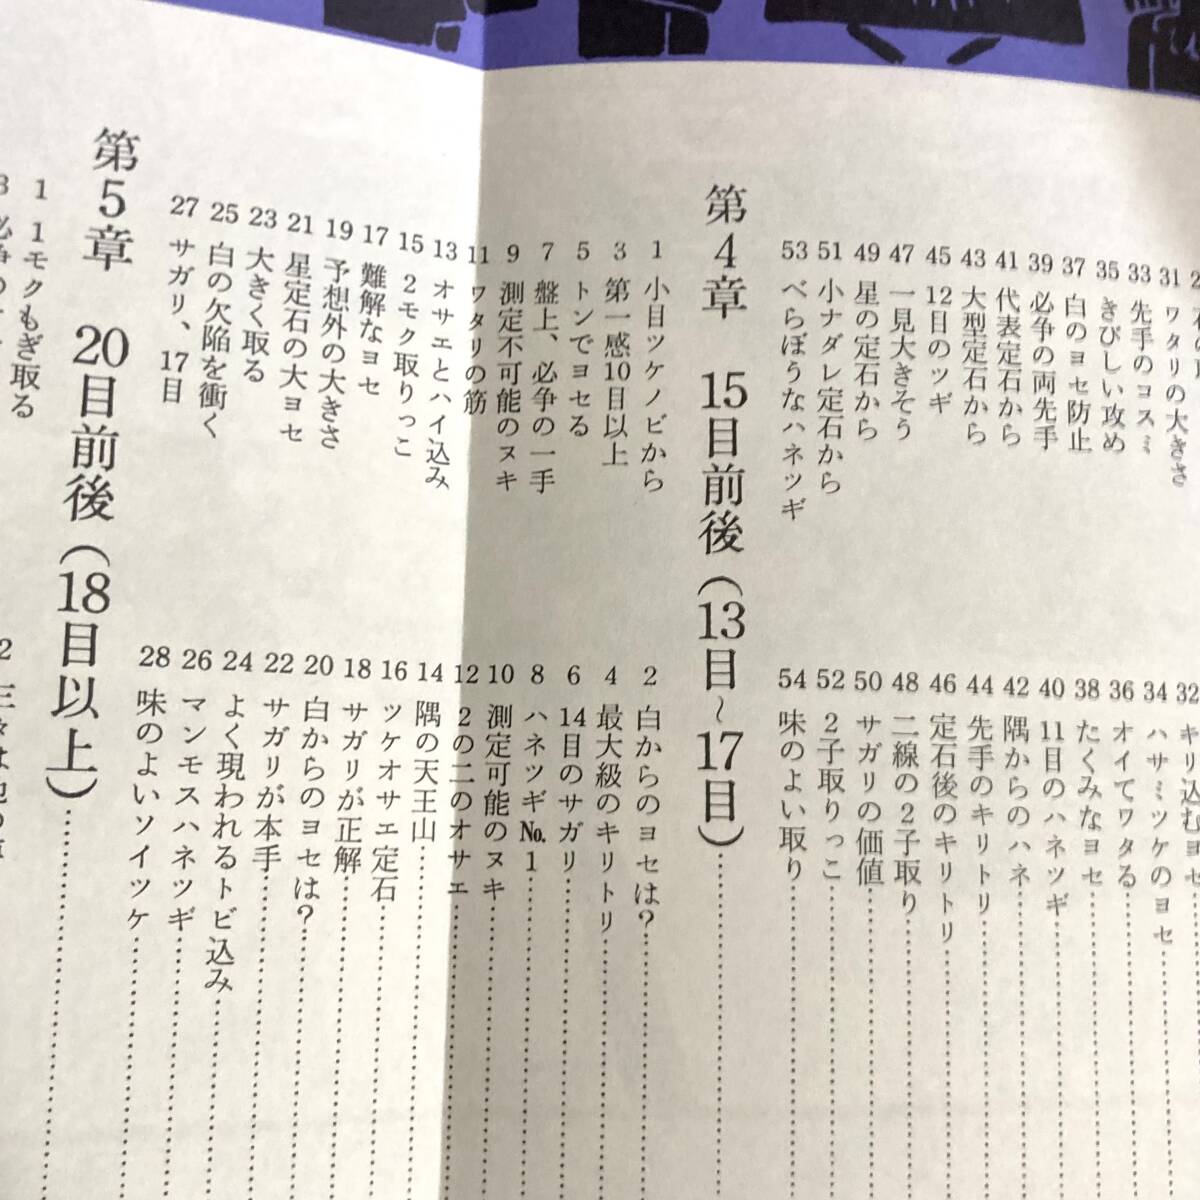 31 ワタリの大きさ
32 キリ込むヨセ
33 先手のコスミ
34 ハサミツケのヨセ
35 きびしい攻め
36 オイてワタる
37 白のヨセ防止
38 たくみなヨセ
39 必争の両先手
40 11目のハネツギ
41 代表定石から
42 隅からのハネ
43 大型定石から
44 先手のキリトリ
45 12目のツギ
46 定石後のキリトリ
47 一見大きそう
48 二線の2子取り
49 星の定石から
50 サガリの価値
51 小ナダレ定石から
52 2子取りっこ
53 べらぼうなハネツギ
54 味のよい取り
第4章 15目前後(13目~17目)
1 小目ツケノビから
2 白からのヨセは?
3 第一感10目以上
4 最大級のキリトリ
5 トンでヨセる
6 14目のサガリ
7 盤上、必争の一手
8 ハネツギNo.1
9 測定不可能のヌキ
10 測定可能のヌキ
11 ワタリの筋
12 2の二のオサエ
13 オサエとハイ込み
14 隅の天王山
15 2モク取りっこ
16 ツケオサエ定石
17 難解なヨセ
18 サガリが正解
19 予想外の大きさ
20 白からのヨセは?
21 星定石の大ヨセ
22 サガリが本手
23 大きく取る
24 よく現われるトビ込み
25 白の欠陥を衝く
26 マンモスハネツギ
27 サガリ、17目
28 味のよいソイツケ
第5章 20目前後(18目以上)
1 1モクもぎ取る